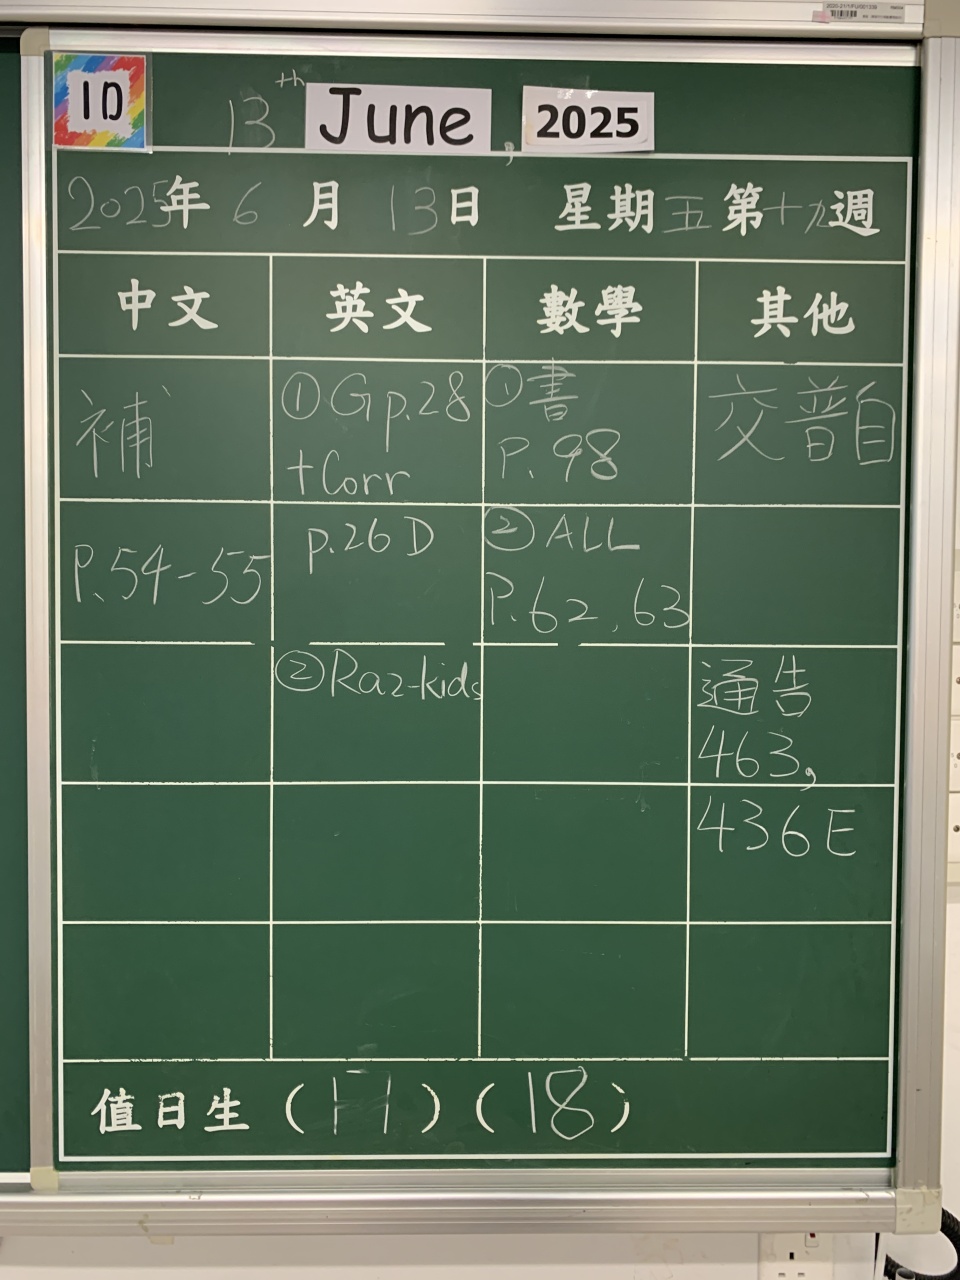 1D
13th June, 2025
2025年6月13日 星期五第十九週
中文 英文 數學 其他
補
P.54-55
①G p.28
+Corr
p.26 D
②Raz-kids
①書
P.98
②ALL
P.62, 63
交普自
通告
463,
436E
值日生(17)(18)